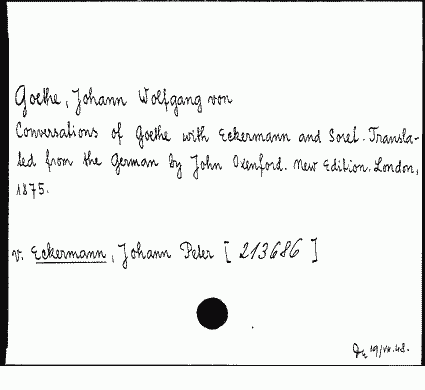 Goethe, Johann Wolfgang von
Conversations of Goethe with Eckermann and Soret. Transla-
ted from the German by John Oxenford. New Edition. London,
1875.
v. Eckermann, Johann Peter [213686]
19/VII.48.